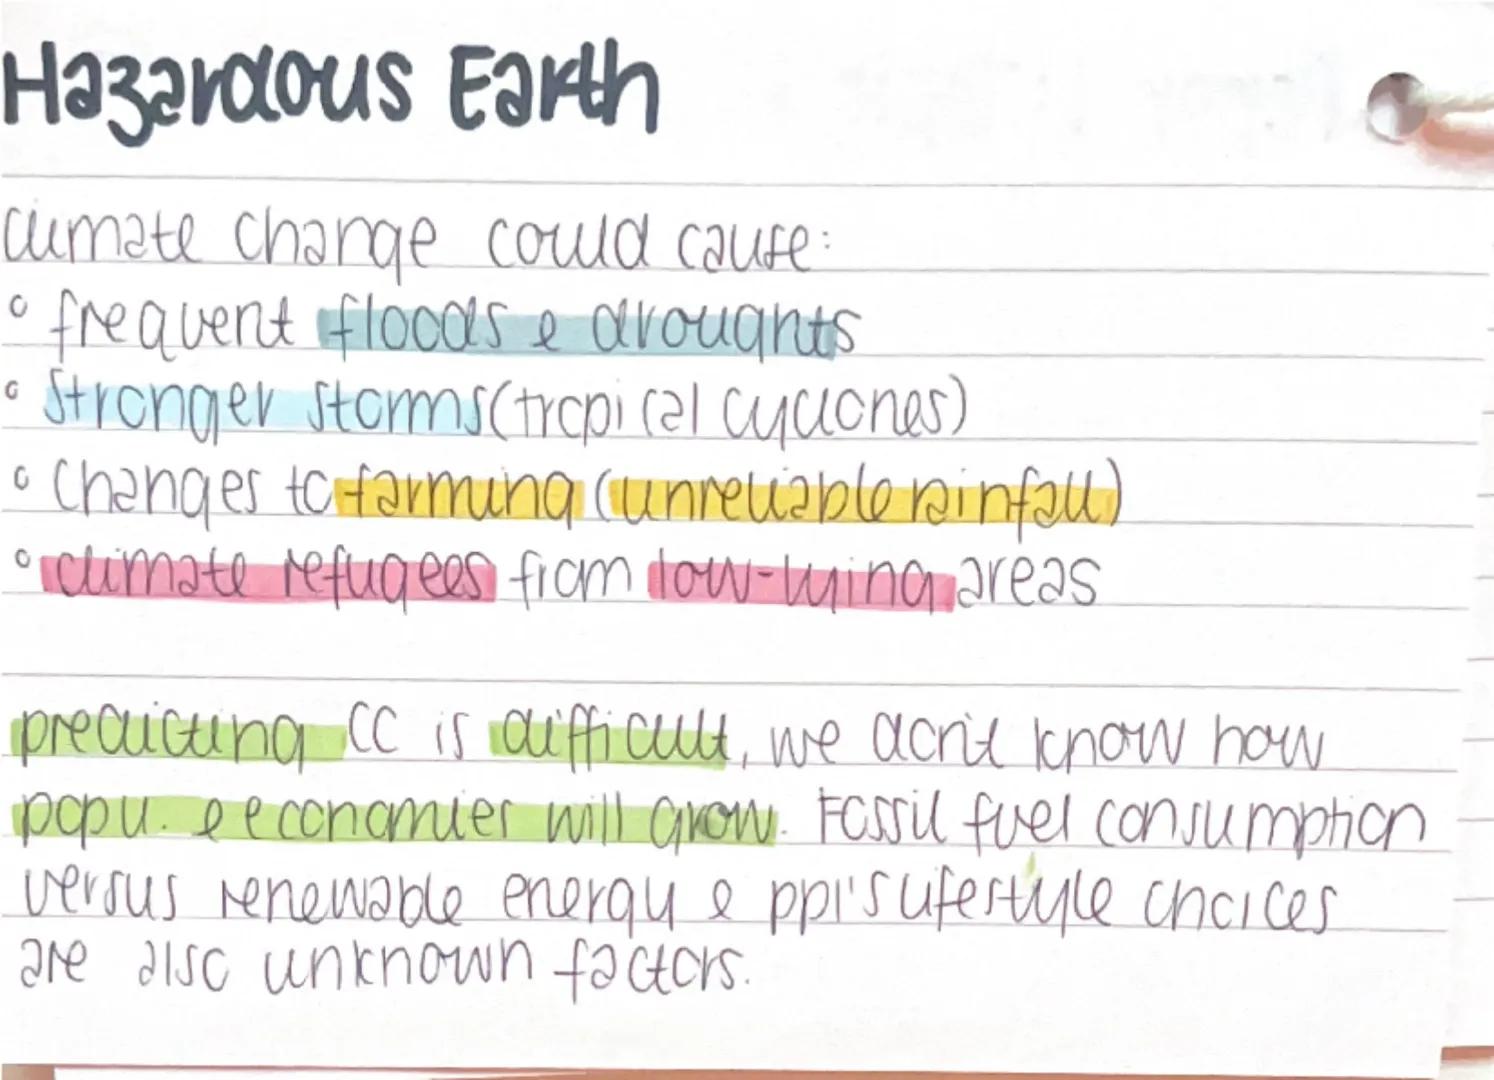 Hazardous Earth
climate change could cause:
◦ frequent floods & droughts
◦ stronger storms (tropical cyclones)
◦ changes to farming (unreliable rainfall)
◦ climate refugees from low-lying areas
predicting CC is difficult, we don't know how
popu. & economies will grow. Fossil fuel consumption
versus renewable energy & ppl's lifestyle choices
are also unknown factors.